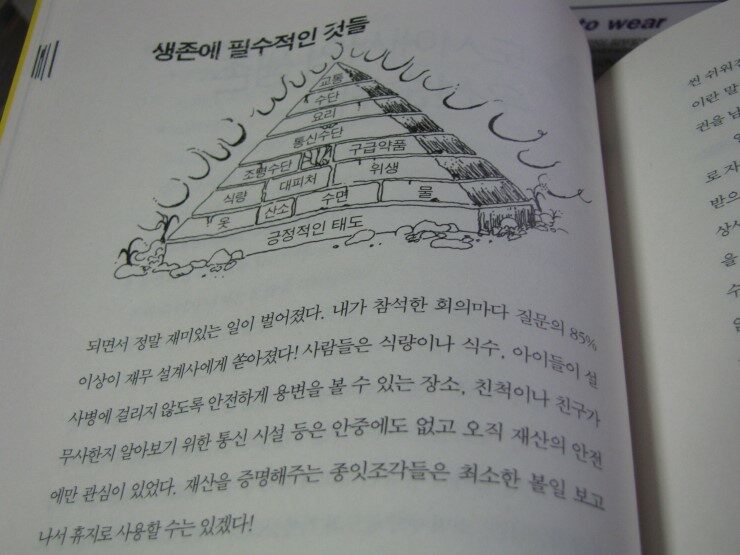 to wear
생존에 필수적인 것들
교통
수단
요리
통신수단
조명수단 구급약품
식량 대피처 위생
옷 산소 수면 물
긍정적인 태도
되면서 정말 재미있는 일이 벌어졌다. 내가 참석한 회의마다 질문의 85%
이상이 재무 설계사에게 쏟아졌다! 사람들은 식량이나 식수, 아이들이 설
사병에 걸리지 않도록 안전하게 용변을 볼 수 있는 장소, 친척이나 친구가
무사한지 알아보기 위한 통신 시설 등은 안중에도 없고 오직 재산의 안전
에만 관심이 있었다. 재산을 증명해주는 종잇조각들은 최소한 볼일 보고
나서 휴지로 사용할 수는 있겠다!
이란 말
권을 남
로 자
받으
상사
을
수